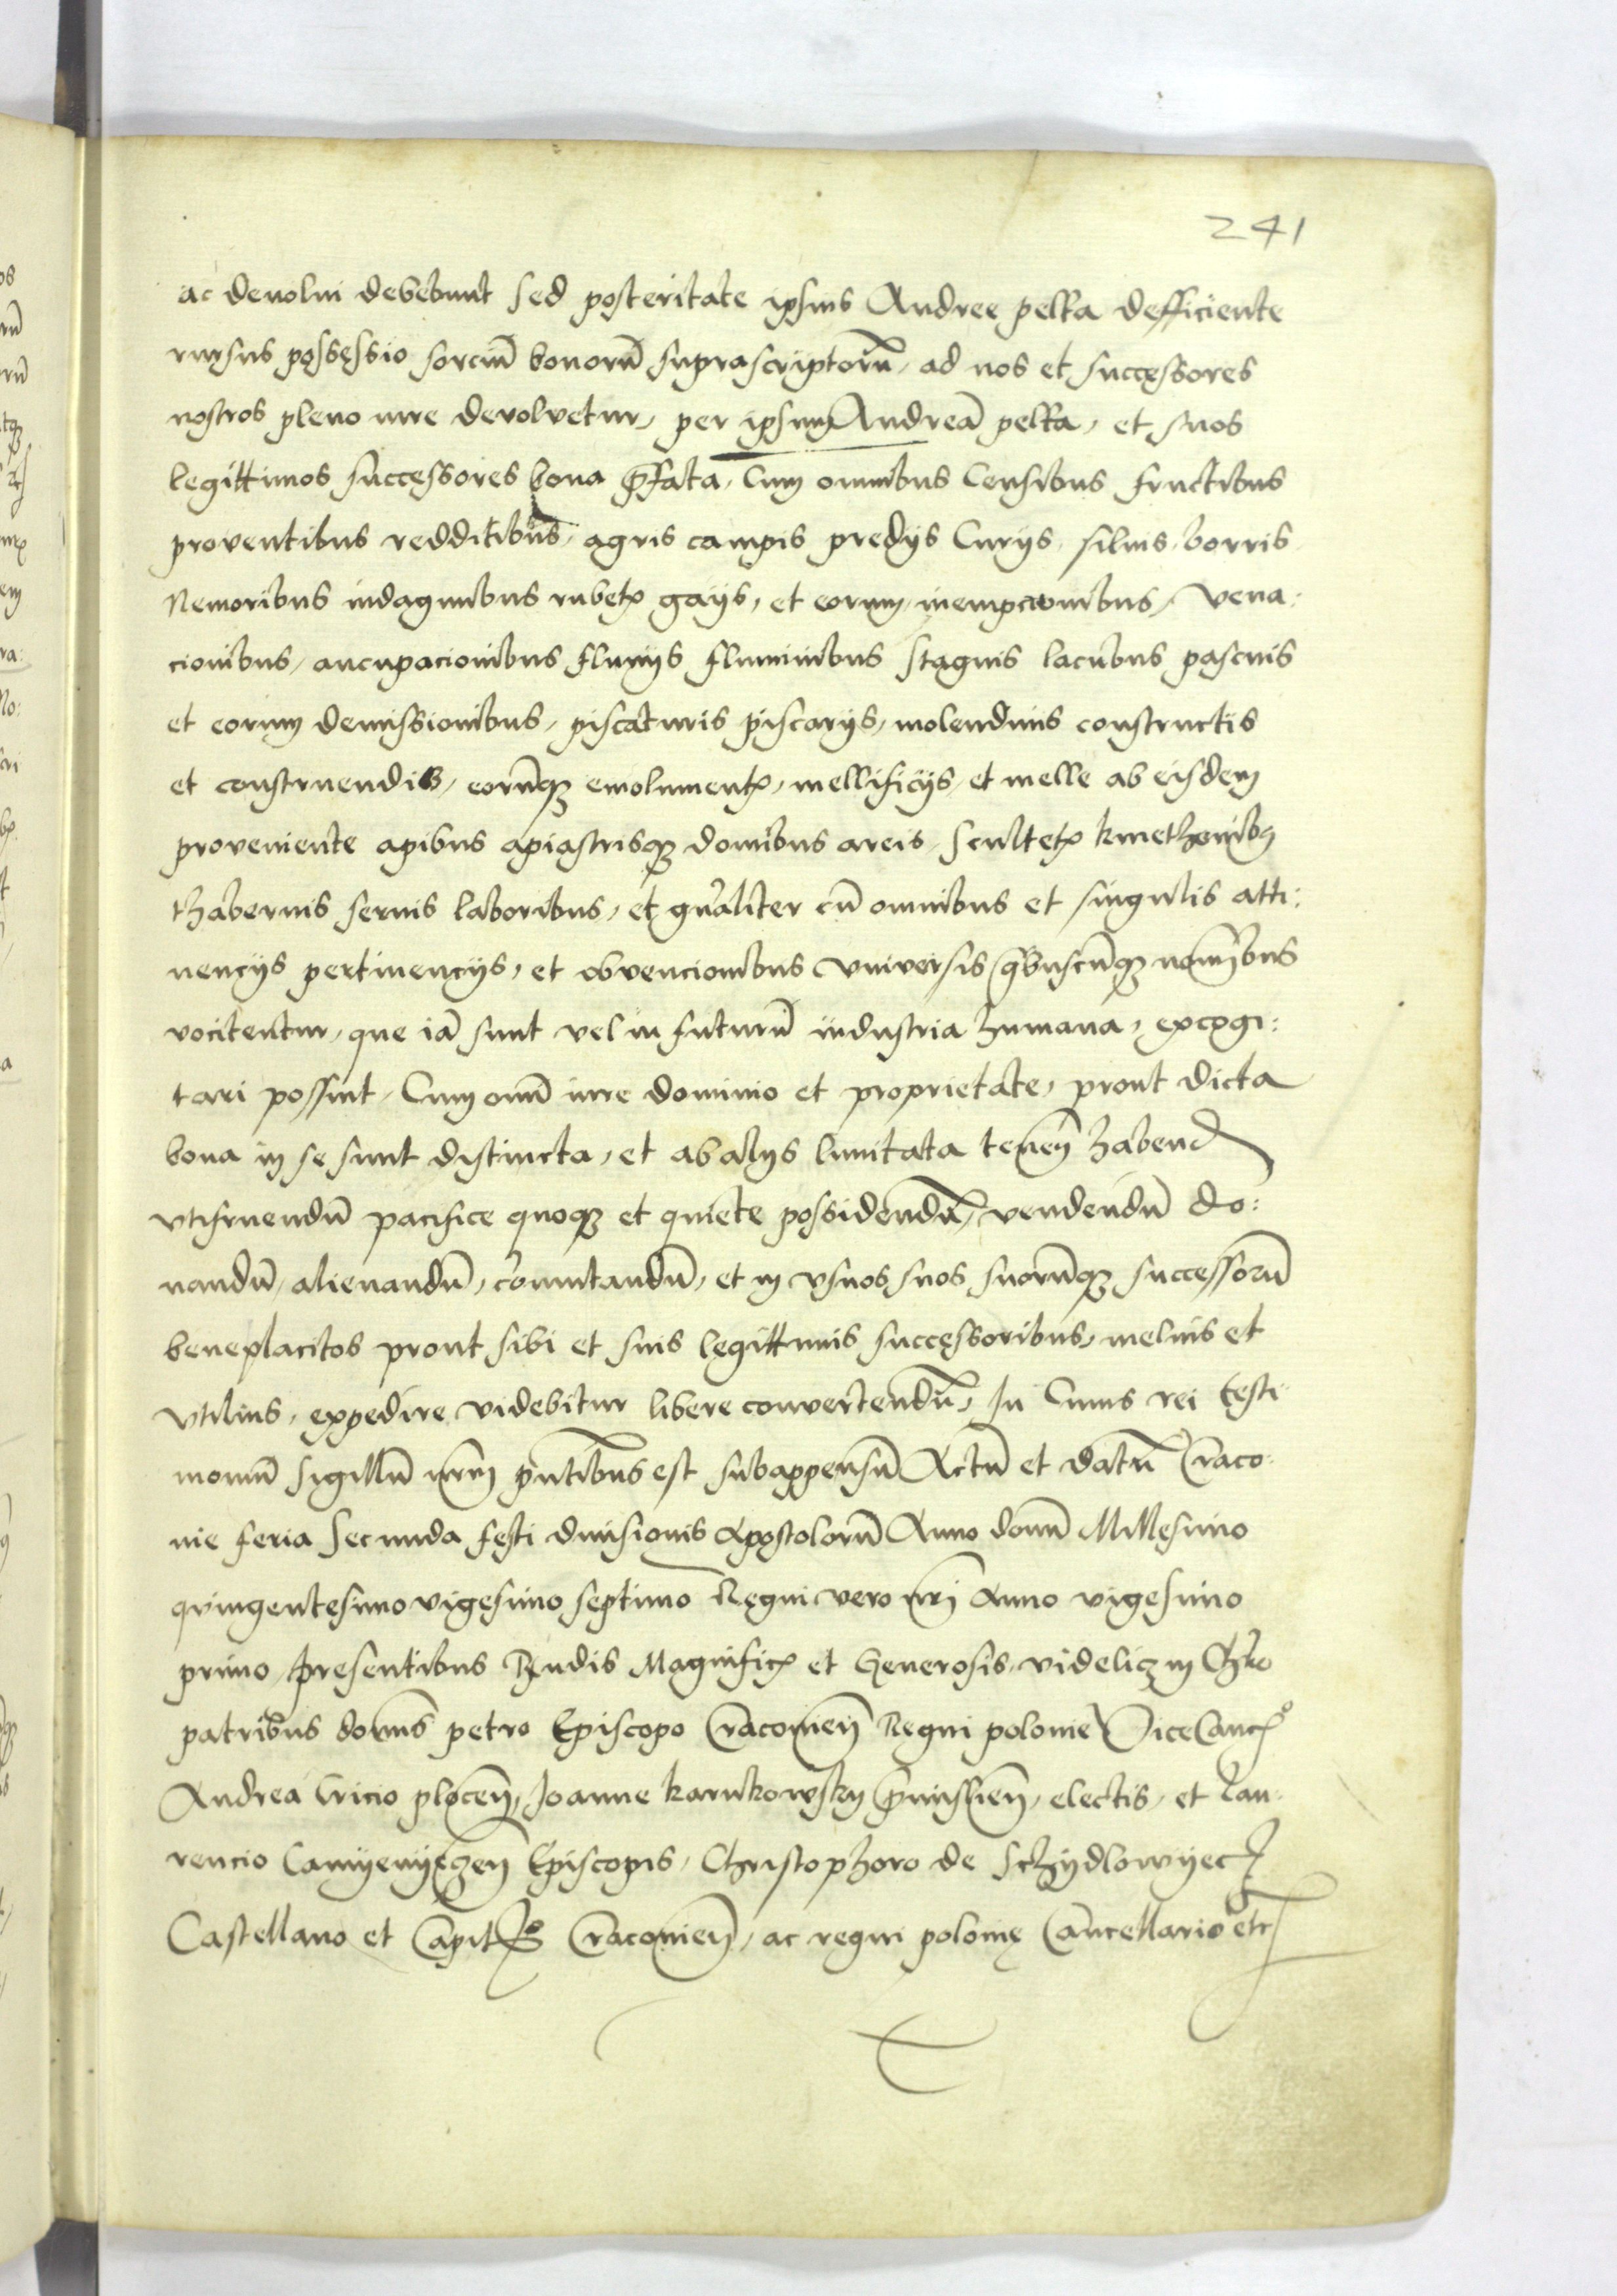 241
ac devolui debebunt Sed posteritate ipsius Andree pelka defficiente
rursus possessio sorciū bonorū suprascriptorū, ad nos et successores
nostros pleno iure devolvetur, per ipsum Andreā pelka, et suos
legittimos successores bona p̄fata, Cum omnibus Censibus fructibus
proventibus redditibus, agris campis predijs Curijs, siluis, borris
Nemoribus indaginibus rubetꝭ gaijs, et eorum, inempcionibus, vena:
cionibus, aucupacionibus fluuijs fluminibus stagnis lacubus pascuis
et eorum demissionibus, piscaturis piscarijs, molendinis constructis
et construendis, eorūqꝫ emolumentꝭ, mellificijs, et melle ab eisdem
proveniente apibus apiastrisqꝫ domibus areis, Scultetꝭ kmethonibꝫ
thabernis seruis laboribus, et gn̄aliter cū omnibus et singulis atti:
nencijs pertinencijs, et obvencionibus vniversis q̄buscūqꝫ nom̄ibus
vocitentur, que iā sunt vel in futurū industria humana, excogi:
tari possint, Cum om̄i iure dominio et proprietate, prout dicta
bona in se sunt distincta, et ab alijs limitata teneñ habend
vtifruendū pacifice quoqꝫ et quiete possidendū, vendendū do:
nandū, alienandū, com̄utandū, et in vsuos suos suorūqꝫ successorū
beneplacitos prout sibi et suis legittimis successoribus, melius et
vtilius, expedire videbitur libere convertendū, In Cuius rei testi
moniū sigillū nr̄m pn̄tibus est subappensū Actū et datū Craco
uie feria Secunda festi diuisionis Apostolorū Anno domī Millesimo
quingentesimo vigesimo septimo Regni vero nr̄i Anno vigesimo
primo, presentibus Rn̄dis Magnificꝭ et Generosis, videlicꝫ in Chro
patribus domīs petro Episcopo Cracovieñ Regni polonie ViceCancꝭo
Andrea Cricio ploceñ, Joanne karnkowsky p̄missieñ, electis, et Lau
rencio Camyenyeczeñ Episcopis, Christophoro de Schydlowyecz
Castellano et Capitꝭo Cracovieñ, ac regni polonię Cancellario etc